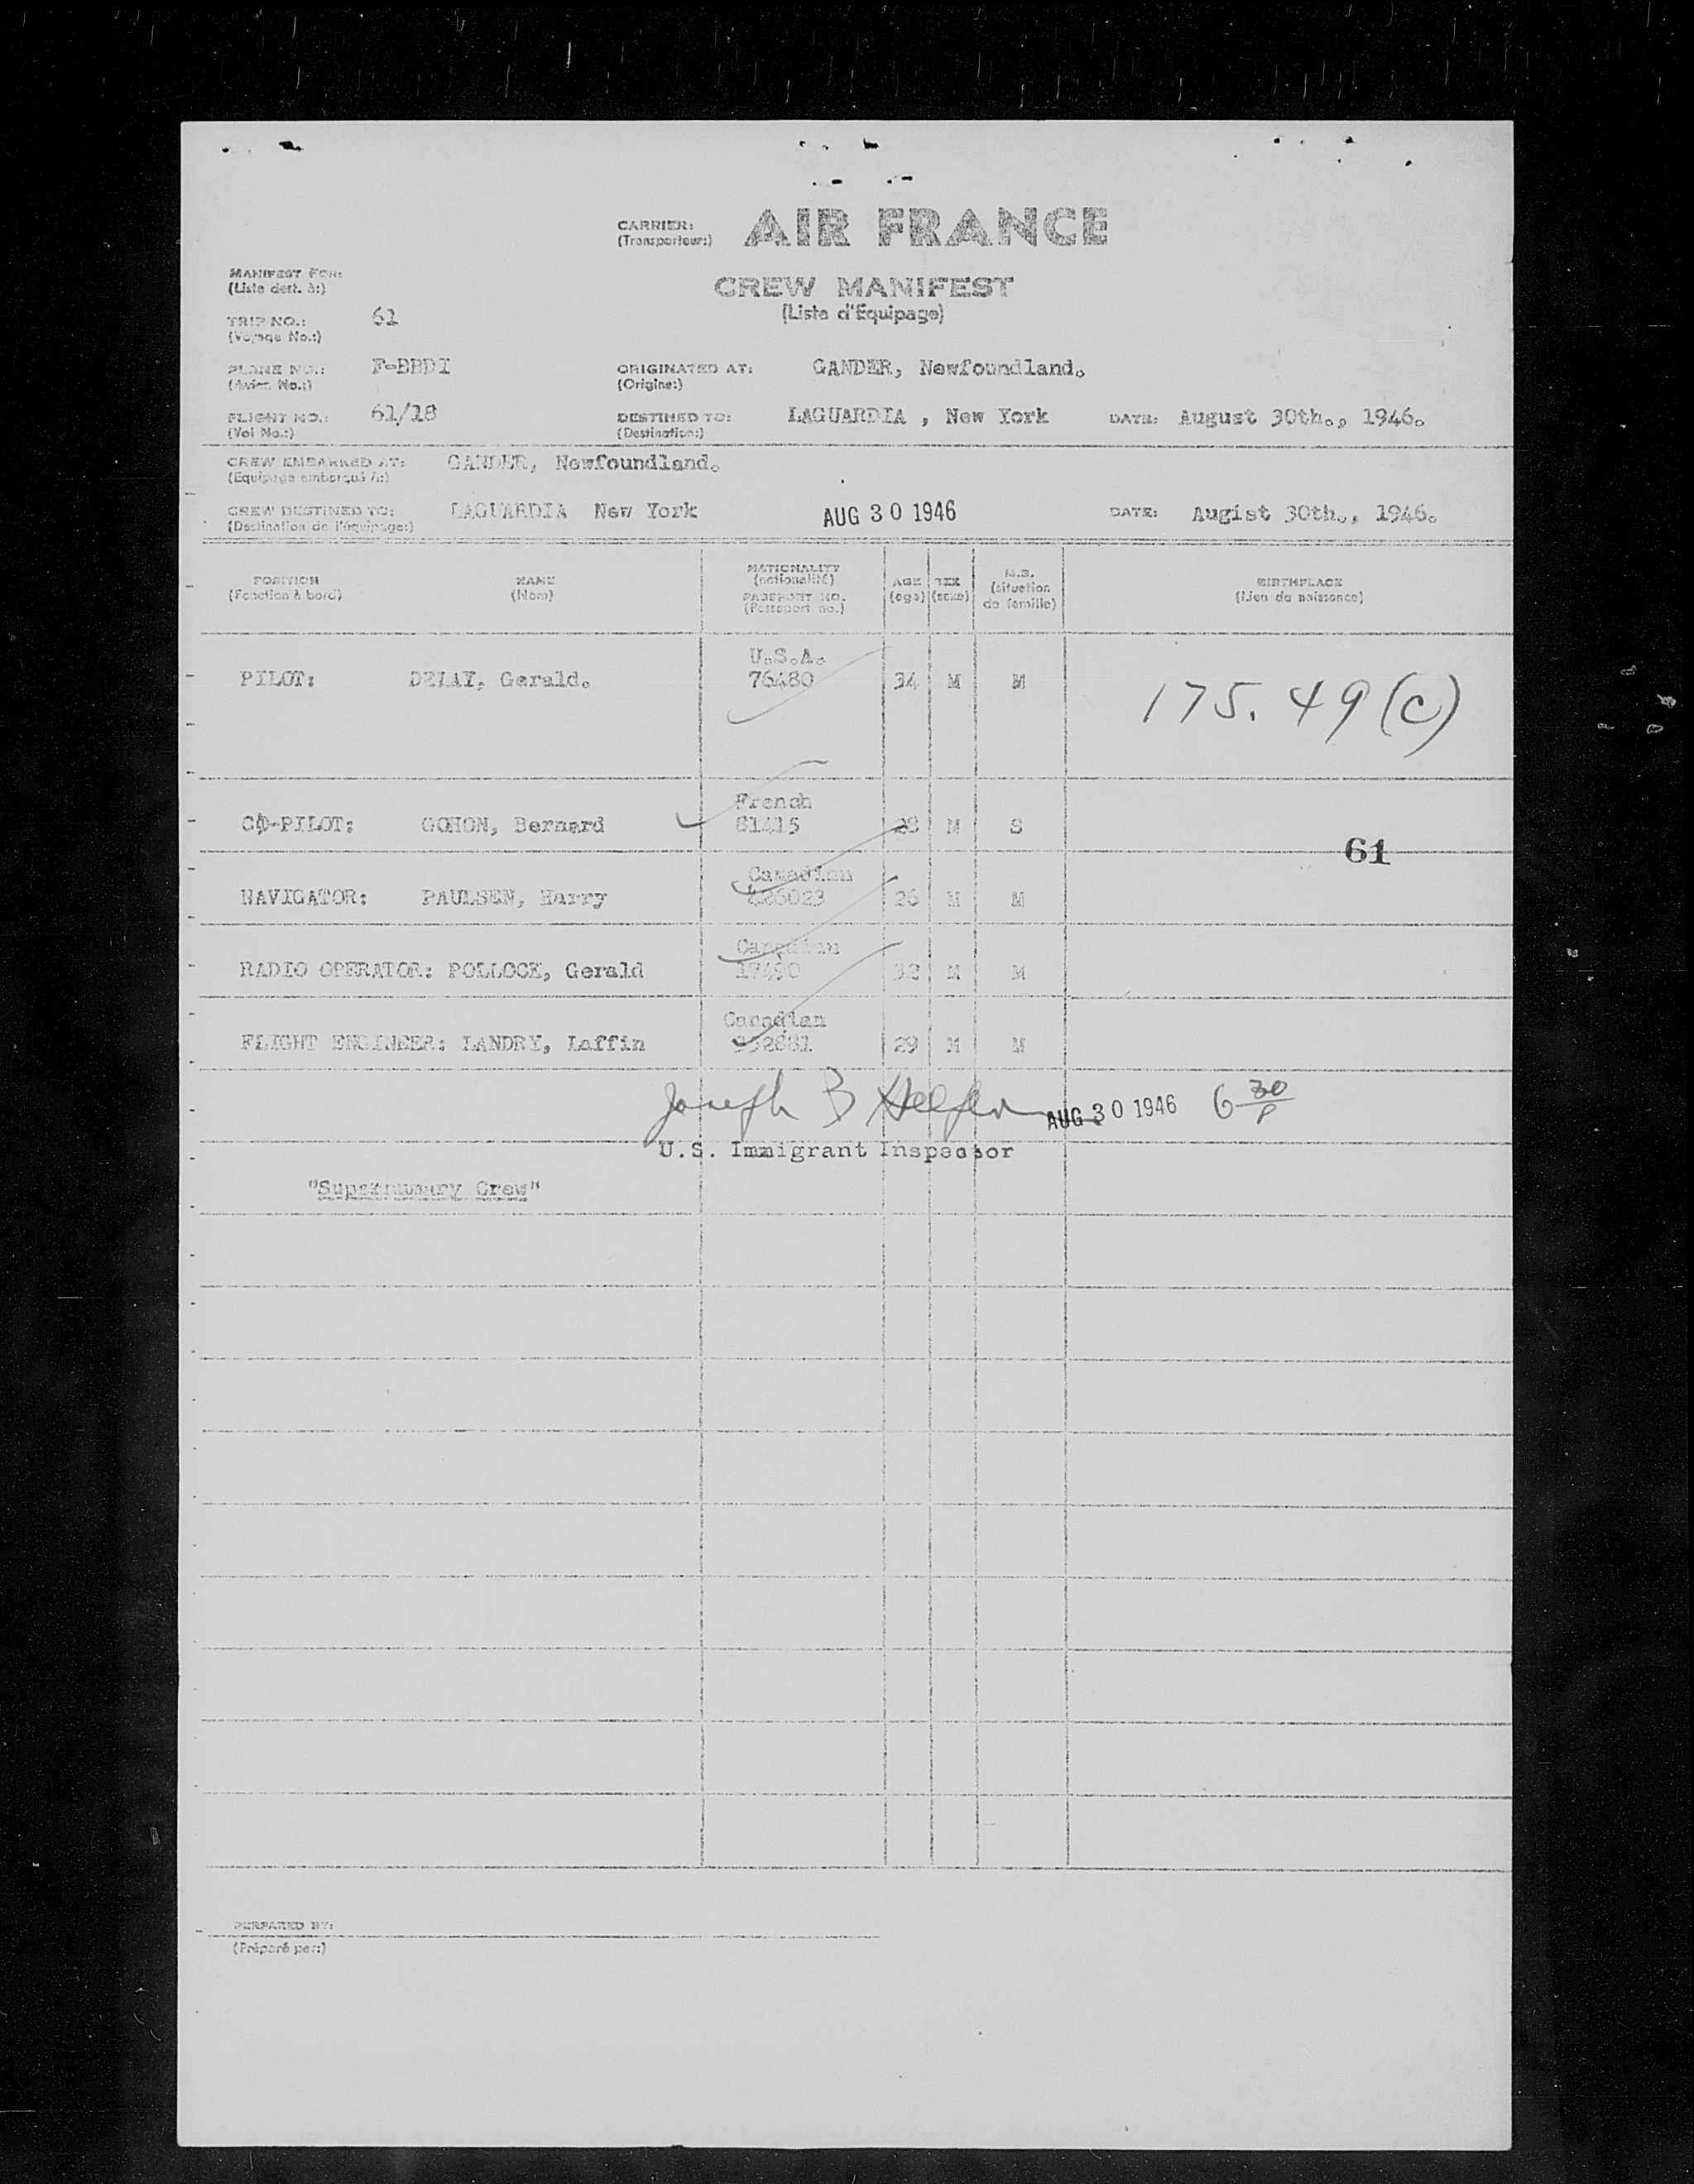 CARRIER: AIR FRANCE
(Transporteur:)
MANIFEST FOR:
(Liste dest. à:)
CREW MANIFEST
(Liste d'Équipage)
TRIP NO.: 61
(Voyage No.:)
PLANE NO.: F-BBDI ORIGINATED AT: GANDER, Newfoundland.
(Avion No.:) (Origine:)
FLIGHT NO.: 61/18 DESTINED TO: LAGUARDIA , New York DATE: August 30th., 1946.
(Vol No.:) (Destination:)
CREW EMBARKED AT: GANDER, Newfoundland.
(Equipage embarqué à:)
CREW DESTINED TO: LAGUARDIA New York AUG 30 1946 DATE: Augist 30th., 1946.
(Destination de l'équipage:)
POSITION NAME NATIONALITY AGE SEX M.S. BIRTHPLACE
(Fonction à bord) (Nom) (nationalité) (age) (sexe) (situation de famille) (Lieu de naissance)
PASSPORT NO.
(Passeport no.)
U.S.A.
PILOT: Gerald. 76480 34 M M
175.49(c)
French
CO-PILOT: GOHON, Bernard 81415 28 M S
61
Canadian
NAVIGATOR: PAULSEN, Harry 26 M M
Canadian
RADIO OPERATOR: POLLOCK, Gerald 17490 32 M M
Canadian
FLIGHT ENGINEER: LANDRY, Laffin 29 M M
Joseph B AUG 30 1946 6 30 P
U.S. Immigrant Inspector
"Supernumary Crew"
PERPARED BY:
(Préparé par:)